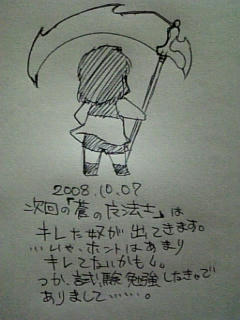 2008.10.07
次回の「蒼の魔法士」は
キレた奴が出てきます。
…いや、ホントはあまり
キレてないかも。
つか、試験勉強したき。で
ありまして……。